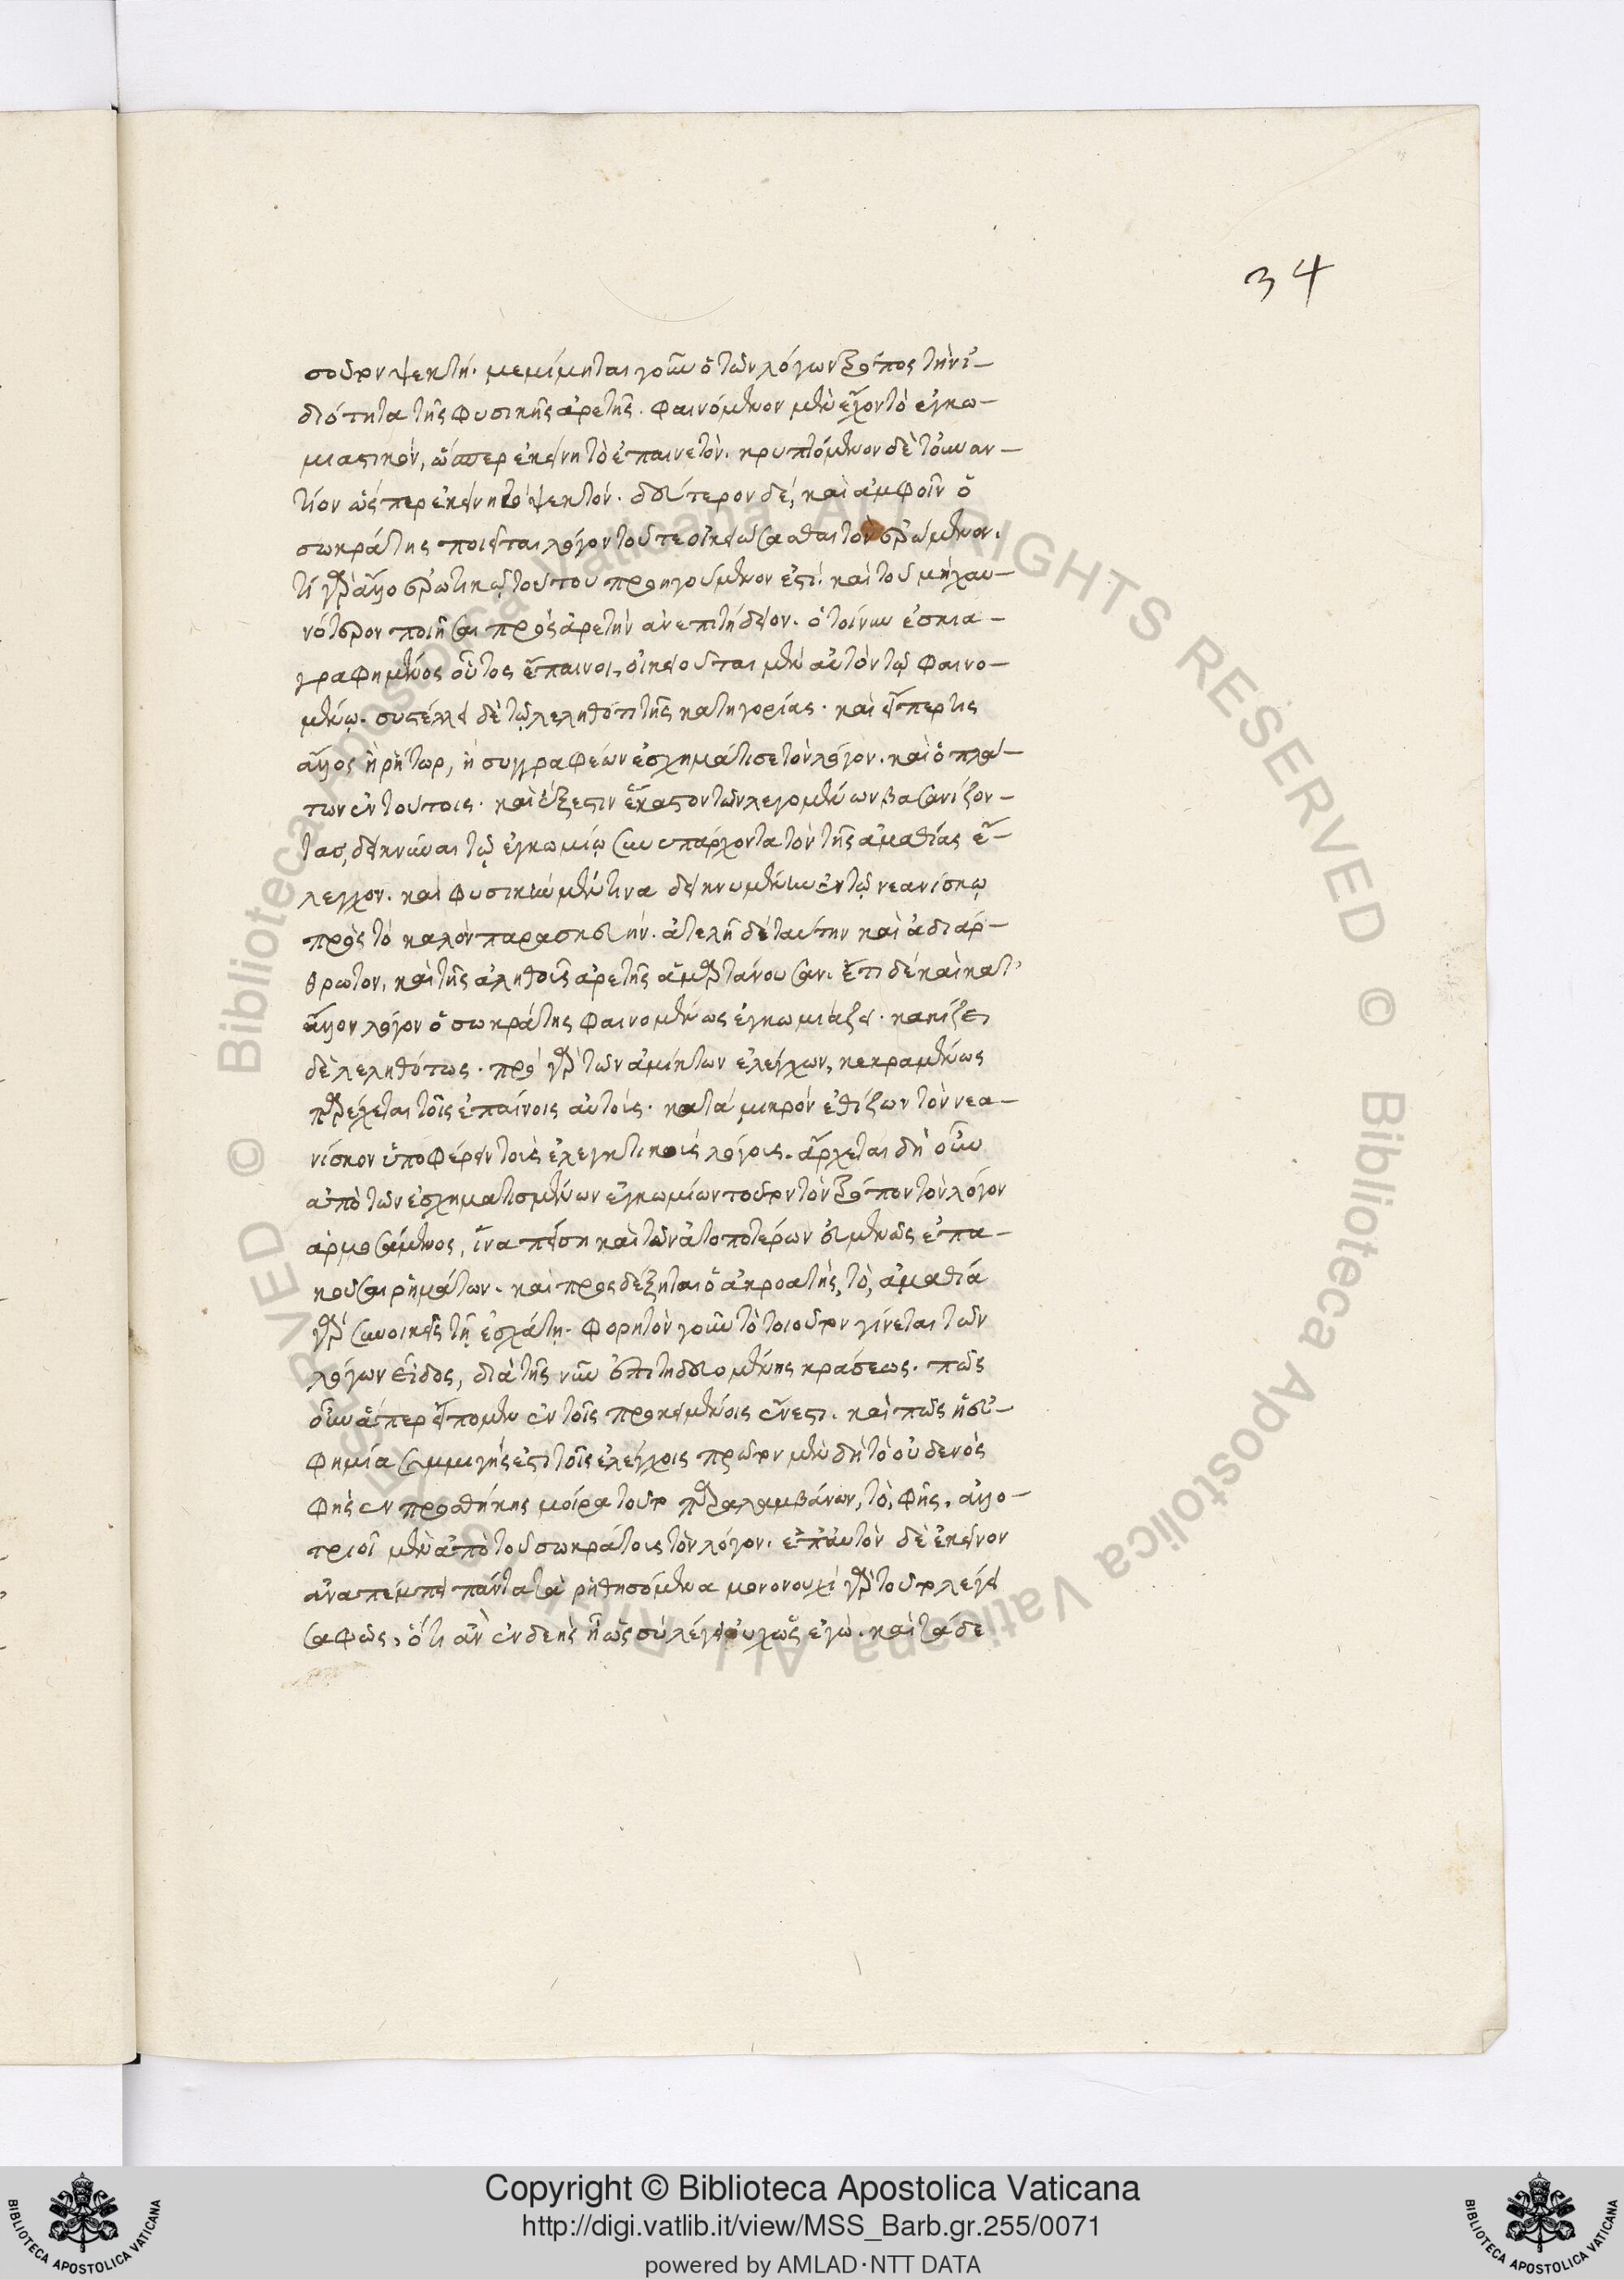 34
σοῦτον ψεκτή. μεμίμηται γοῦν ὁ τῶν λόγων τρόπος τὴν ἰ–
διότητα τῆς φυσικῆς ἀρετῆς. φαινόμενον μὲν ἔχον τὸ ἐγκω–
μιαστικόν, ὥσπερ ἐκείνη τὸ ἐπαινετόν. κρυπτόμενον δὲ τοὐναν–
τίον ὥσπερ ἐκείνη τὸ ψεκτόν. δεύτερον δέ, καὶ ἀμφοῖν ὁ
σωκράτης ποιεῖται λόγον τοῦ τε οἰκειώσασθαι τὸν ἐρώμενον.
τί γὰρ ἄλλο ἐρωτικῷ τούτου προηγούμενον ἐστί. καὶ τοῦ μὴ χαυ–
νότερον ποιῆσαι πρὸς ἀρετὴν ἀνεπιτήδειον. ὁ τοίνυν ἐσκια–
γραφημένος οὗτος ἔπαινοι, οἰκειοῦται μὲν αὐτὸν τῷ φαινο–
μένῳ. συστέλλει δὲ τῷ λεληθότι τῆς κατηγορίας. καὶ εἴπερ τις
ἄλλος ἢ ῥήτωρ, ἢ συγγραφέων ἐσχημάτισε τὸν λόγον. καὶ ὁ πλά–
των ἐν τούτοις. καὶ ἔξεστιν ἕκαστον τῶν λεγομένων βασανίζον–
τας, δεικνύναι τῷ ἐγκωμίῳ συνυπάρχοντα τὸν τῆς ἀμαθίας ἔ–
λεγχον. καὶ φυσικὴν μέν τινα δεικνυμένην ἐν τῷ νεανίσκῳ
πρὸς τὸ καλὸν παρασκευήν. ἀτελῆ δὲ ταύτην καὶ ἀδιάρ–
θρωτον, καὶ τῆς ἀληθοῦς ἀρετῆς ἁμαρτάνουσαν. ἔτι δὲ καὶ κατ'
ἄλλον λόγον ὁ σωκράτης φαινομένως ἐγκωμιάζει. κακίζει
δὲ λεληθότως. πρὸ γὰρ τῶν ἀμίκτων ἐλέγχων, κεκραμένως
παρέχεται τοῖς ἐπαίνοις αὐτούς. κατὰ μικρὸν ἐθίζων τὸν νεα–
νίσκον ὑποφέρειν τοῖς ἐλεγκτικοῖς λόγοις. ἄρχεται δὴ οὖν
ἀπὸ τῶν ἐσχηματισμένων ἐγκωμίων τοῦτον τὸν τρόπον τὸν λόγον
ἁρμοσάμενος, ἵνα πείσῃ καὶ τῶν ἀτοπωτέρων εὐμενῶς ἐπα–
κοῦσαι ῥημάτων. καὶ προσδέξηται ὁ ἀκροατὴς, τὸ, ἀμαθίᾳ
γὰρ συνοικεῖς τῇ ἐσχάτῃ. φορητὸν γοῦν τὸ τοιοῦτον γίνεται τῶν
λόγων εἶδος, διὰ τῆς νῦν ἐπιτηδευομένης κράσεως. πῶς
οὖν ἅπερ εἴπομεν ἐν τοῖς προκειμένοις ἔνεστι. καὶ πῶς ἡ εὐ–
φημία συμμιγής ἐστι τοῖς ἐλέγχοις πρῶτον μὲν δὴ τὸ οὐδενὸς
φῂς ἐν προσθήκης μοίρᾳ τοῦτο παραλαμβάνων, τὸ, φῂς, ἀλλο–
τριοῖ μὲν ἀπὸ τοῦ σωκράτους τὸν λόγον. ἐπ' αὐτὸν δὲ ἐκεῖνον
ἀναπέμπει πάντα τὰ ῥηθησόμενα μονονουχὶ γὰρ τοῦτο λέγει
σαφῶς, ὅτι ἂν ἐνδεὴς ᾖ ὡς σὺ λέγεις οὐχ ὡς ἐγὼ. καὶ τάδε
Copyright © Biblioteca Apostolica Vaticana
http://digi.vatlib.it/view/MSS_Barb.gr.255/0071
powered by AMLAD·NTT DATA
BIBLIOTECA APOSTOLICA VATICANA
BIBLIOTECA APOSTOLICA VATICANA
© Biblioteca Apostolica Vaticana ALL RIGHTS RESERVED © Biblioteca Apostolica Vaticana ALL RIGHTS RESERVED